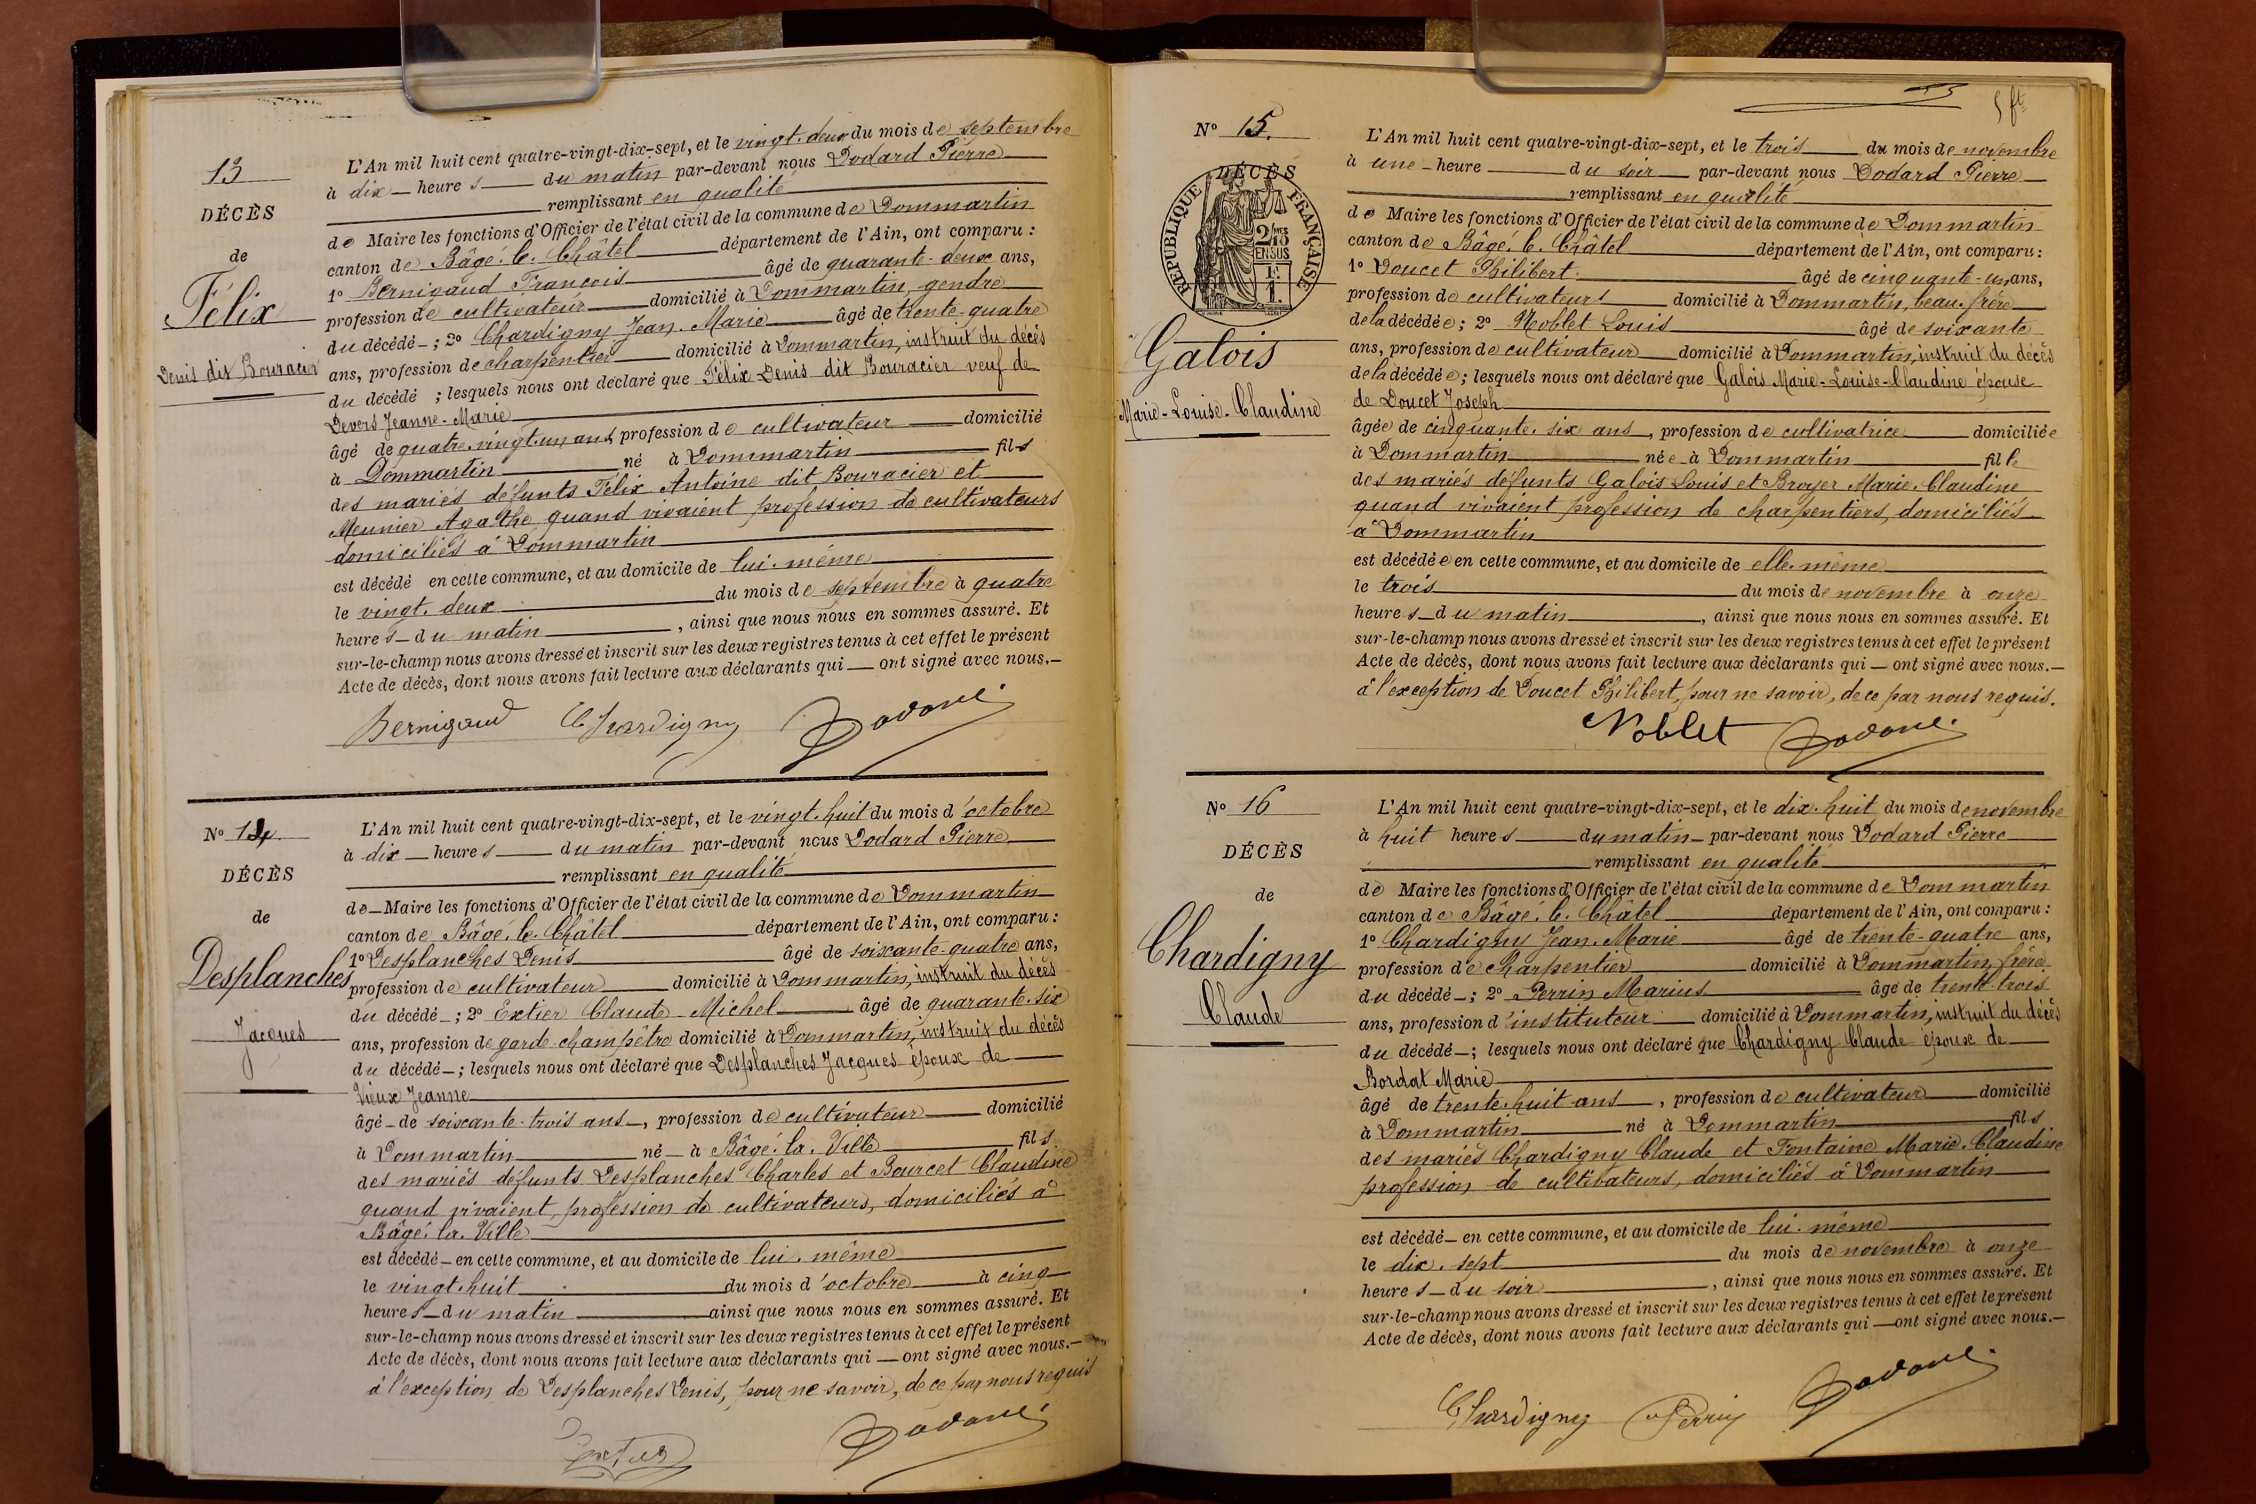 13
DÉCÈS
de
Félix
Denis dit Bouracier
L'An mil huit cent quatre-vingt-dix-sept, et le vingt-deux du mois de septembre
à dix heures du matin par-devant nous Dodard Pierre
remplissant en qualité
de Maire les fonctions d'Officier de l'état civil de la commune de Dommartin
canton de Bâgé-le-Châtel département de l'Ain, ont comparu :
1° Bernigaud François âgé de quarante-deux ans,
profession de cultivateur domicilié à Dommartin, gendre
du décédé ; 2° Chardigny Jean-Marie âgé de trente-quatre
ans, profession de charpentier domicilié à Dommartin, instruit du décès
du décédé ; lesquels nous ont déclaré que Félix Denis dit Bouracier veuf de
Devers Jeanne-Marie
âgé de quatre-vingt-un ans, profession de cultivateur domicilié
à Dommartin né à Dommartin fils
des mariés défunts Félix Antoine dit Bouracier et
Meunier Agathe quand vivaient profession de cultivateurs
domiciliés à Dommartin
est décédé en cette commune, et au domicile de lui-même
le vingt-deux du mois de septembre à quatre
heures du matin, ainsi que nous nous en sommes assuré. Et
sur-le-champ nous avons dressé et inscrit sur les deux registres tenus à cet effet le présent
Acte de décès, dont nous avons fait lecture aux déclarants qui ont signé avec nous.
Bernigaud Chardigny Dodard
N° 14
DÉCÈS
de
Desplanches
Jacques
L'An mil huit cent quatre-vingt-dix-sept, et le vingt-huit du mois d'octobre
à dix heures du matin par-devant nous Dodard Pierre
remplissant en qualité
de Maire les fonctions d'Officier de l'état civil de la commune de Dommartin
canton de Bâgé-le-Châtel département de l'Ain, ont comparu :
1° Desplanches Denis âgé de soixante-quatre ans,
profession de cultivateur domicilié à Dommartin, instruit du décès
du décédé ; 2° Extier Claude-Michel âgé de quarante-six
ans, profession de garde-champêtre domicilié à Dommartin, instruit du décès
du décédé ; lesquels nous ont déclaré que Desplanches Jacques époux de
Vieux Jeanne
âgé de soixante-trois ans, profession de cultivateur domicilié
à Dommartin né à Bâgé-la-Ville fils
des mariés défunts Desplanches Charles et Bourcet Claudine
quand vivaient, profession de cultivateurs, domiciliés à
Bâgé-la-Ville
est décédé en cette commune, et au domicile de lui-même
le vingt-huit du mois d'octobre à cinq
heures du matin ainsi que nous nous en sommes assuré. Et
sur-le-champ nous avons dressé et inscrit sur les deux registres tenus à cet effet le présent
Acte de décès, dont nous avons fait lecture aux déclarants qui ont signé avec nous.
à l'exception de Desplanches Denis, pour ne savoir, de ce par nous requis
Extier Dodard
N° 15.
DÉCÈS
RÉPUBLIQUE FRANÇAISE
Galois
Marie-Louise-Claudine
L'An mil huit cent quatre-vingt-dix-sept, et le trois du mois de novembre
à une heure du soir par-devant nous Dodard Pierre
remplissant en qualité
de Maire les fonctions d'Officier de l'état civil de la commune de Dommartin
canton de Bâgé-le-Châtel département de l'Ain, ont comparu :
1° Doucet Philibert âgé de cinquante-un ans,
profession de cultivateurs domicilié à Dommartin, beau-frère
de la décédée ; 2° Noblet Louis âgé de soixante
ans, profession de cultivateur domicilié à Dommartin, instruit du décès
de la décédée ; lesquels nous ont déclaré que Galois Marie-Louise-Claudine épouse
de Doucet Joseph
âgée de cinquante-six ans, profession de cultivatrice domiciliée
à Dommartin née à Dommartin fille
des mariés défunts Galois Louis et Broyer Marie-Claudine
quand vivaient profession de charpentiers, domiciliés
à Dommartin
est décédée en cette commune, et au domicile de elle-même
le trois du mois de novembre à onze
heures du matin, ainsi que nous nous en sommes assuré. Et
sur-le-champ nous avons dressé et inscrit sur les deux registres tenus à cet effet le présent
Acte de décès, dont nous avons fait lecture aux déclarants qui ont signé avec nous.
à l'exception de Doucet Philibert, pour ne savoir, de ce par nous requis.
Noblet Dodard
N° 16
DÉCÈS
de
Chardigny
Claude
L'An mil huit cent quatre-vingt-dix-sept, et le dix-huit du mois de novembre
à huit heures du matin par-devant nous Dodard Pierre
remplissant en qualité
de Maire les fonctions d'Officier de l'état civil de la commune de Dommartin
canton de Bâgé-le-Châtel département de l'Ain, ont comparu :
1° Chardigny Jean-Marie âgé de trente-quatre ans,
profession de charpentier domicilié à Dommartin, frère
du décédé ; 2° Perrin Marius âgé de trente-trois
ans, profession d'instituteur domicilié à Dommartin, instruit du décès
du décédé ; lesquels nous ont déclaré que Chardigny Claude époux de
Bordat Marie
âgé de trente-huit ans, profession de cultivateur domicilié
à Dommartin né à Dommartin fils
des mariés Chardigny Claude et Fontaine Marie-Claudine
profession de cultivateurs, domiciliés à Dommartin
est décédé en cette commune, et au domicile de lui-même
le dix-sept du mois de novembre à onze
heures du soir, ainsi que nous nous en sommes assuré. Et
sur-le-champ nous avons dressé et inscrit sur les deux registres tenus à cet effet le présent
Acte de décès, dont nous avons fait lecture aux déclarants qui ont signé avec nous.
Chardigny Perrin Dodard